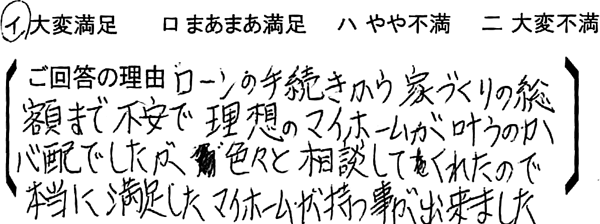 イ 大変満足 ロ まあまあ満足 ハ やや不満 ニ 大変不満
ご回答の理由 ローンの手続きから家づくりの総
額まで不安で理想のマイホームが叶うのか
心配でしたが、色々と相談してくれたので
本当に満足したマイホームが持つ事が出来ました